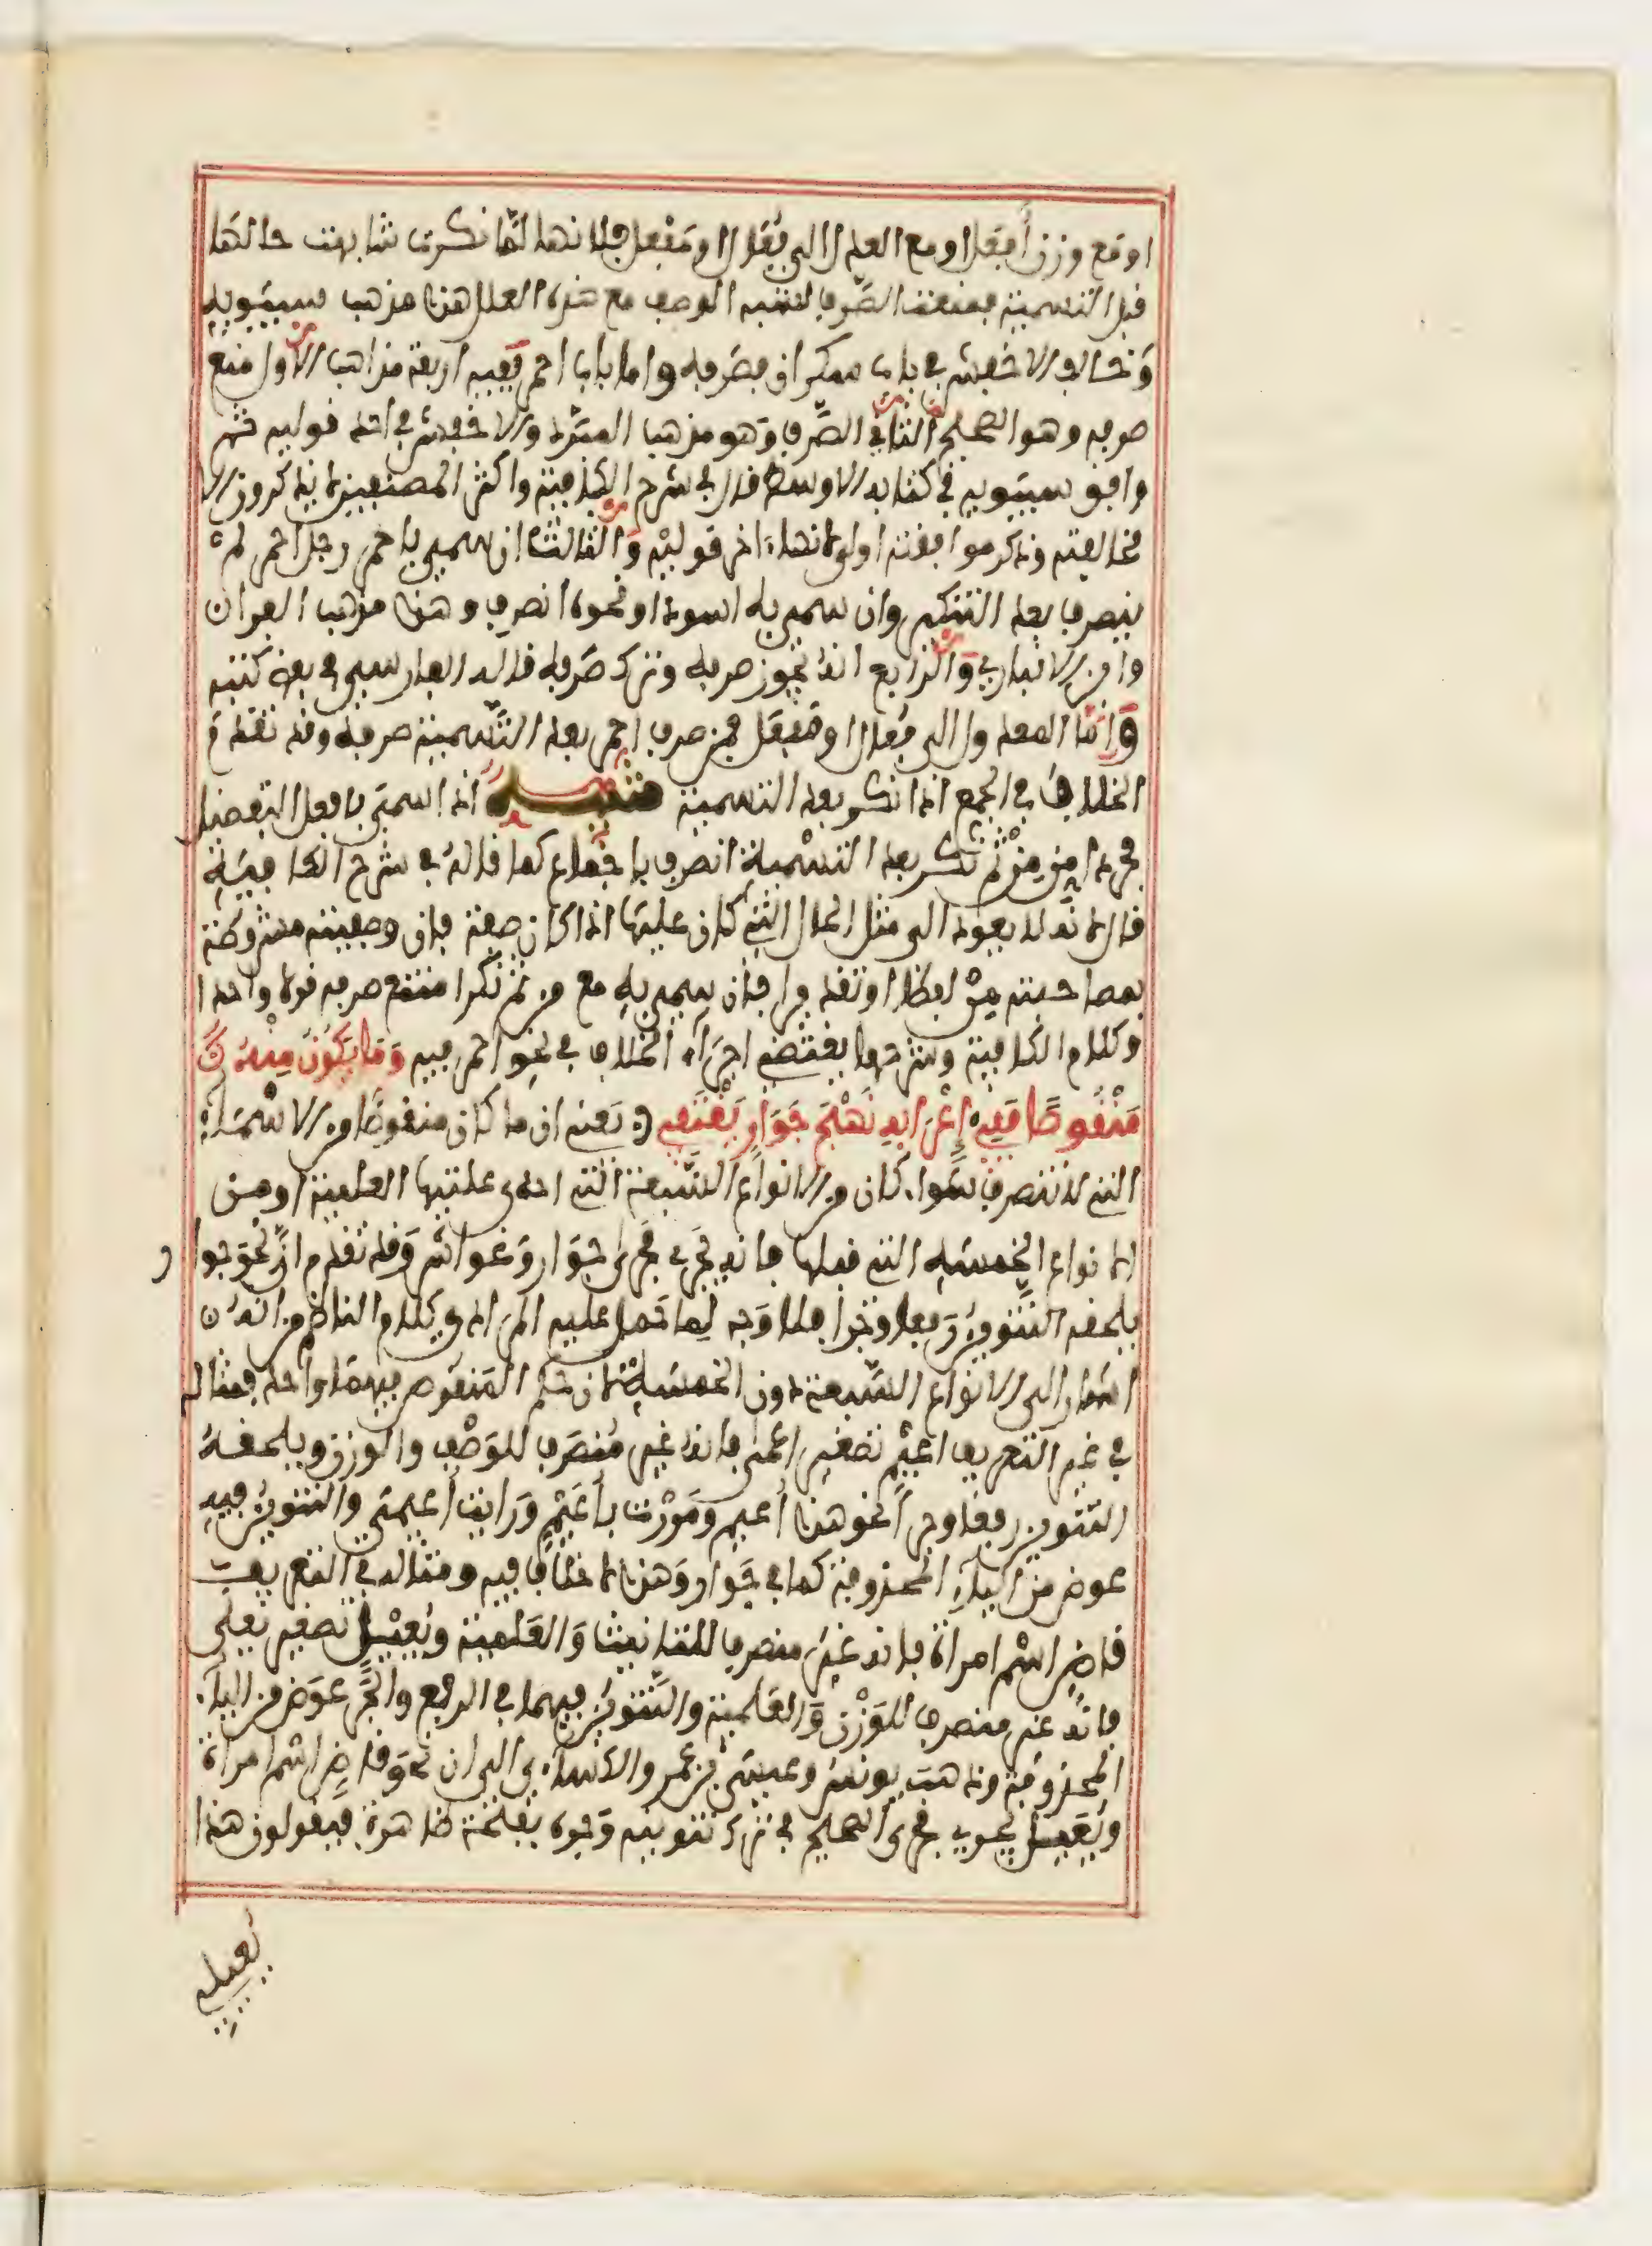 او مع وزن أفعل او مع العدل الى فعال او مفعل فلانها لما نكرت شابهت حالها
قبل التسمية فمنعت الصرف لشبه الوصف مع هذه العلل هذا مذهب سيبويه
وخالف الاخفش في باب سكران فصرفه واما باب احمر ففيه اربعة مذاهب الاول منع
صرفه وهو الصحيح الثاني الصرف وهو مذهب المبرد والاخفش في احد قوليه ثم
وافق سيبويه في كتابه الاوسط قال في شرح الكافية واكثر المصنفين لا يذكرون الا
مخالفته وذكر موافقته اولى لانها اخر قوليه والثالث ان سمي باحمر رجل احمر لم
ينصرف بعد التنكير وان سمي به اسود او نحوه انصرف وهذا مذهب الفراء
وابن الانباري والرابع انه يجوز صرفه وترك صرفه قاله الفارسي في بعض كتبه
واما المعدول الى فعال او مفعل فمن صرف احمر بعد التسمية صرفه وقد تقدم
الخلاف في الجمع اذا نكر بعد التسمية تنبيه اذا سمي بافعل التفضيل
مجردا من من ثم نكر بعد التسمية انصرف باجماع كما قاله في شرح الكافية
قال لانه لا يعود الى مثل الحال التي كان عليها اذا كان صفة فان وصفيته مشروطة
بمصاحبته من لفظا او تقديرا فان سمي به مع من ثم نكر امتنع صرفه قولا واحدا
وكلام الكافية وشرحها يقتضي اجراء الخلاف في نحو احمر فيه وما يكون منه
منقوصا ففي إعرابه نهج جوار يقتفي يعني ان ما كان منقوصا من الاسماء
التي لا تنصرف سواء كان من الانواع السبعة التي احدى علتيها العلمية او من
الانواع الخمسة التي قبلها فانه يجري مجرى جوار وغواش وقد تقدم ان نحو جوار
يلحقه التنوين رفعا وجرا فلا وجه لما حمل عليه المرادي كلام الناظم من انه
اشار الى الانواع السبعة دون الخمسة لان حكم المنقوص فيهما واحد فمثاله
في غير التعريف اعيم تصغير اعمى فانه غير منصرف للوصف والوزن ويلحقه
التنوين رفعا وجرا نحو هذا أعيم ومررت بأعيم ورايت أعيمي والتنوين فيه
عوض من الياء المحذوفة كما في جوار وهذا لا خلاف فيه ومثاله في التعريف
قاض اسم امراة فانه غير منصرف للتانيث والعلمية ويعيل تصغير يعلى
فانه غير منصرف للوزن والعلمية والتنوين فيهما في الرفع والجر عوض من الياء
المحذوفة وذهب يونس وعيسى بن عمر والكساءي الى ان نحو قاض اسم امراة
ويعيل يجري مجرى الصحيح في ترك تنوينه وجره بفتحة ظاهرة فيقولون هذا
يعيلي